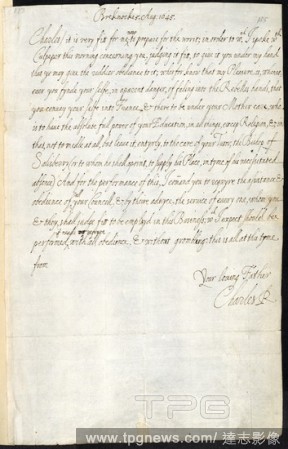 Breknocke 5 Aug: 1645.
Charles, it is very fit for me now to prepare for the worst; in order to wch I spoke wth
Culpeper this morning concerning you, judging it fit, to give it you under my hand,
that ye may give the readier obedience to it; wherfor know that my Pleasure is, whensoever
ever you fynde your selfe, in aparent danger, of falling into the Rebells hands, that
you convey your selfe into France, & there to be under your Mothers care, who
is to have the absolute full power of your Education, in all things, except Religion, & in
that, not to medle at all, but leave it entyrly, to the care of your Tutor, the Bishop of
Salisbury, or to whom he shall apoint, to supply his Place, in tyme of his necessitated
absence: And for the performance of this, I comand you to requyre the asistance &
obedience of your Councell, & by there advyce, the service of every one, whom you
& they shall judge fit to be employed in this Business; wch I expect should be
performed, if neede requyre, with all obedience, & without grumbling: this is all at this tyme
from
Your loving Father
Charles R
TPG
www.tpgnews.com/ 達志影像